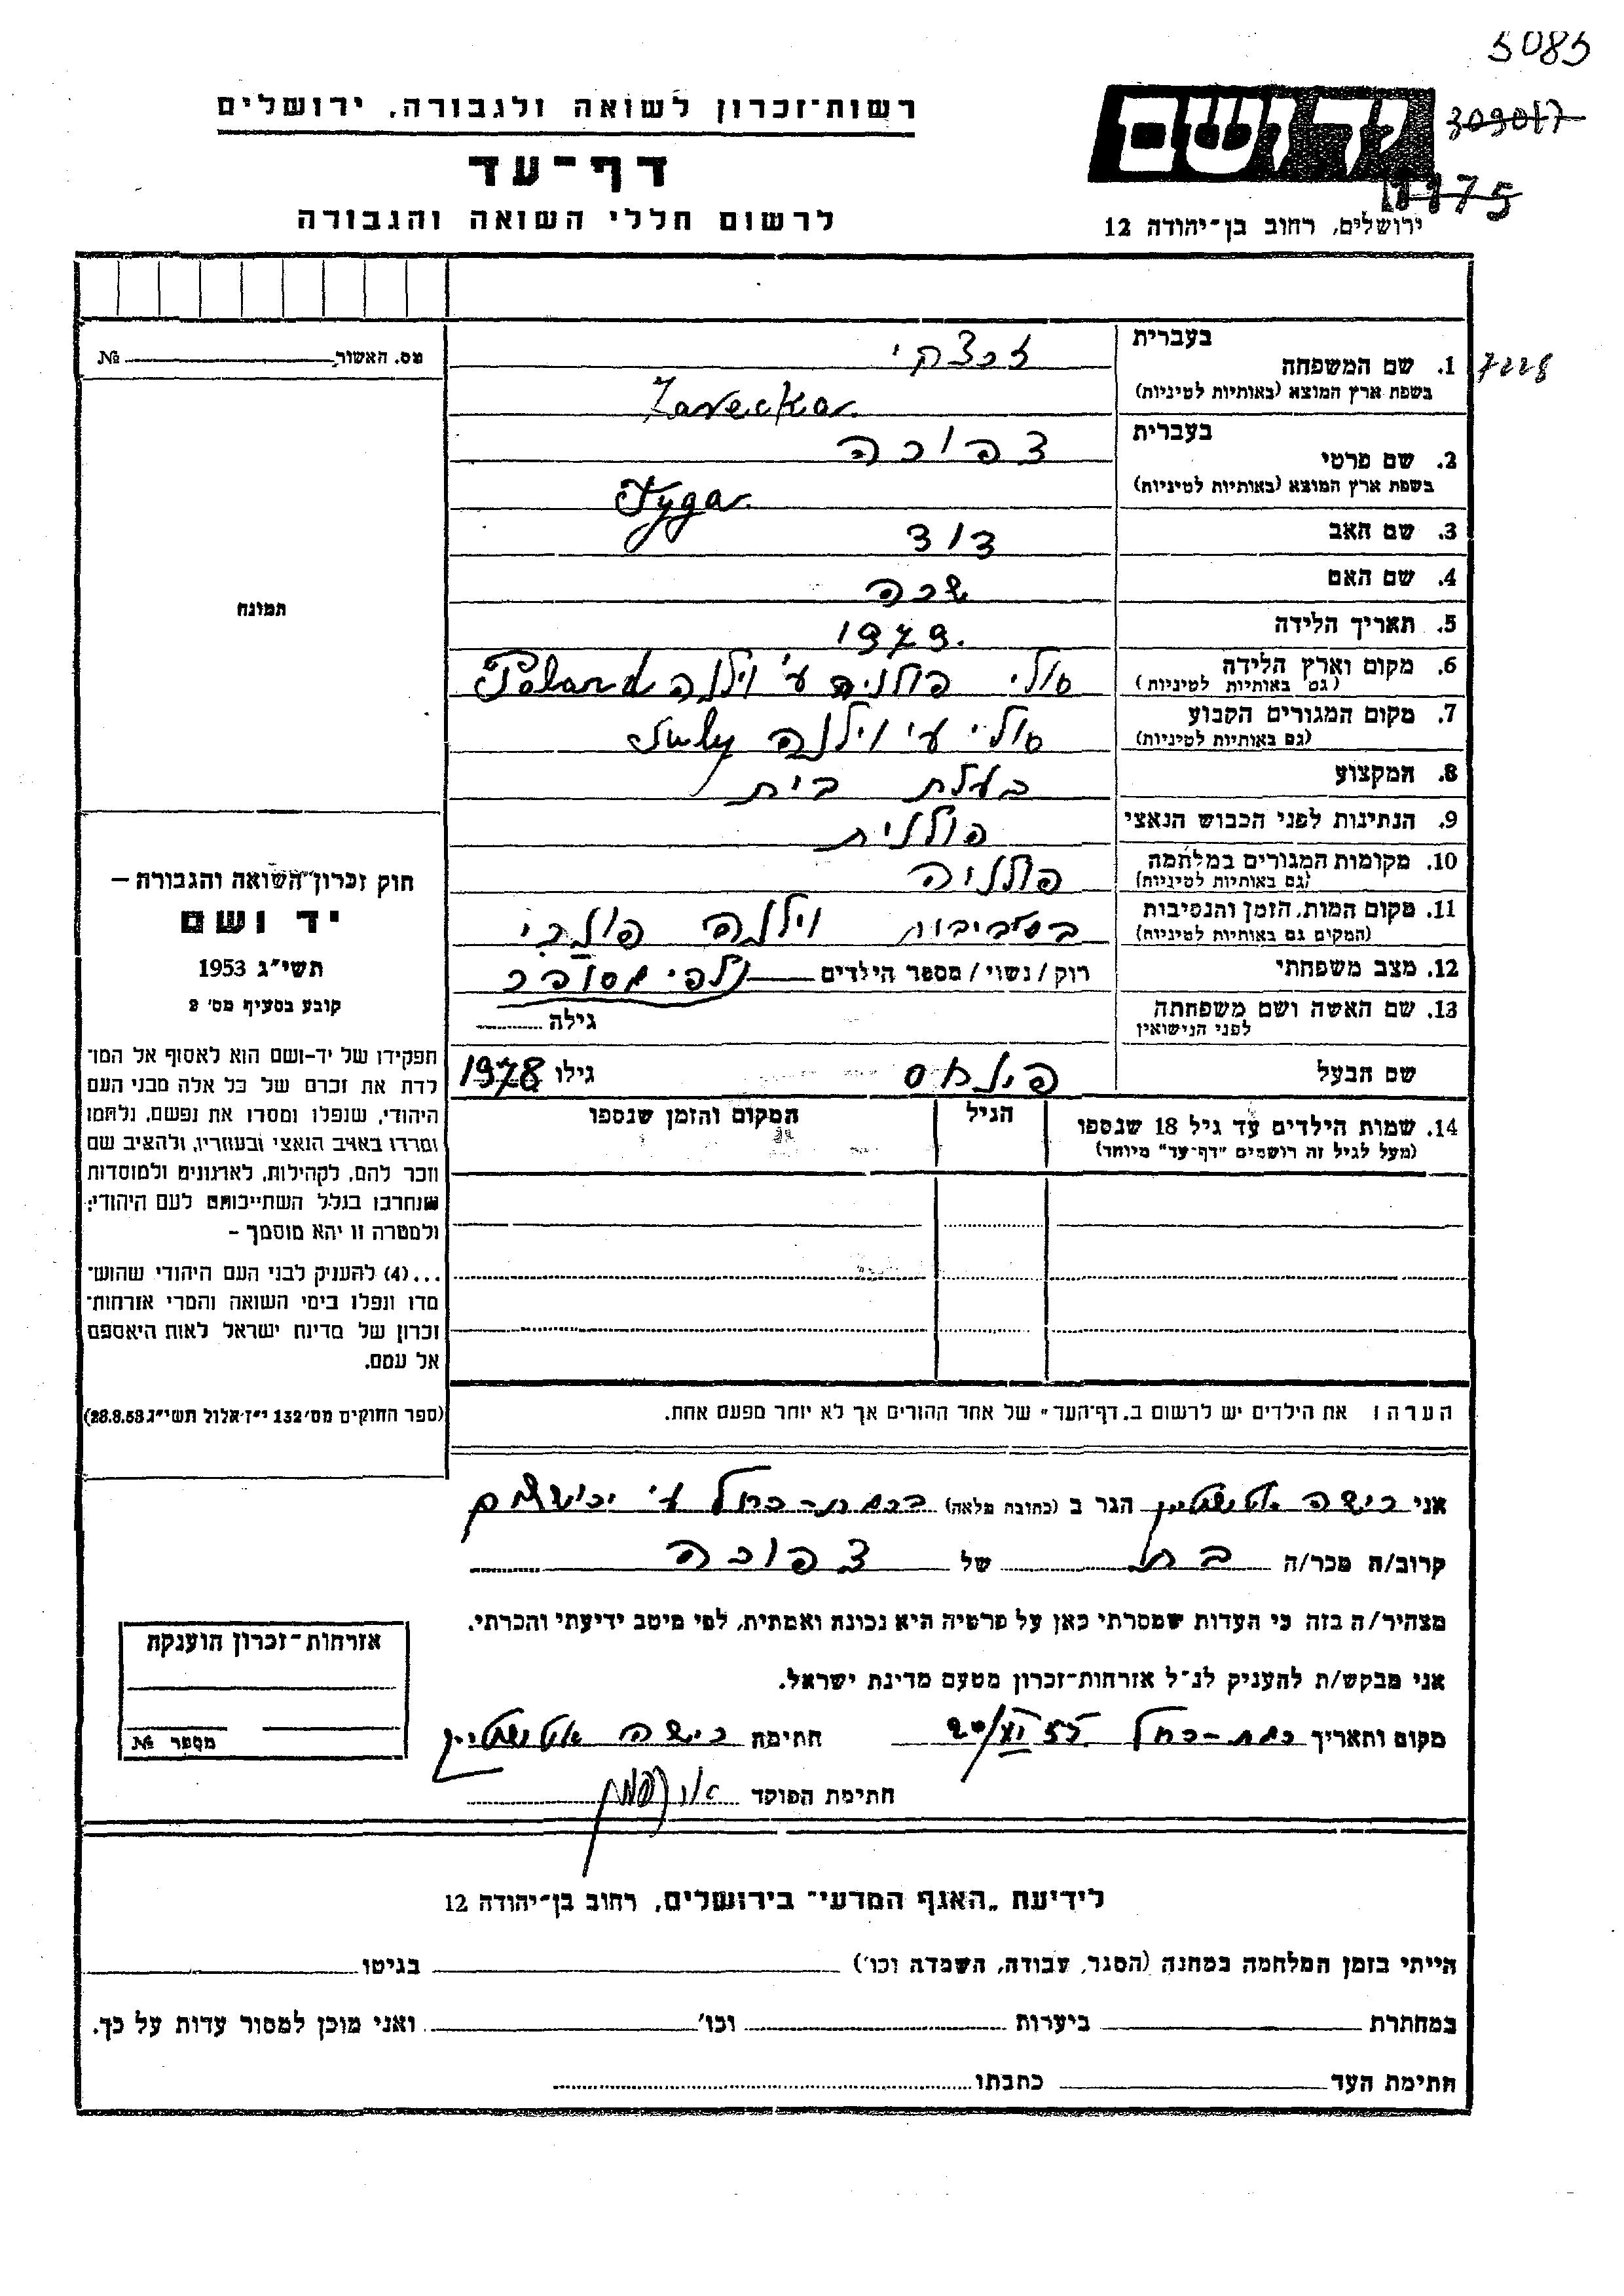 5085
רשות-זכרון לשואה ולגבורה, ירושלים
ידושם
309017
דף-עד
1775
לרשום חללי השואה והגבורה
ירושלים, רחוב בן-יהודה 12
מס. האשור № 
7228
בעברית
1. שם המשפחה זרצקי
בשפת ארץ המוצא (באותיות לטיניות) Zarecka
בעברית
2. שם פרטי צפורה
בשפת ארץ המוצא (באותיות לטיניות) Fyga
3. שם האב דוד
4. שם האם שרה
תמונה
5. תאריך הלידה
6. מקום וארץ הלידה סולי פולניה ע' וילנה Poland
(גם באותיות לטיניות)
7. מקום המגורים הקבוע סולי ע' וילנה Suly
(גם באותיות לטיניות)
8. המקצוע בעלת בית
9. הנתינות לפני הכבוש הנאצי פולנית
10. מקומות המגורים במלחמה פולניה
(גם באותיות לטיניות)
11. מקום המות, הזמן והנסיבות בסביבות וילנה
(המקום גם באותיות לטיניות)
12. מצב משפחתי רוק / נשוי / מספר הילדים
13. שם האשה ושם משפחתה גילה
לפני הנישואין
שם הבעל פינחס גילו
14. שמות הילדים עד גיל 18 שנספו הגיל המקום והזמן שנספו
(מעל לגיל זה רושמים "דף-עד" מיוחד)
חוק זכרון השואה והגבורה –
יד ושם
תשי"ג 1953
קובע בסעיף מס' 2
תפקידו של יד-ושם הוא לאסוף אל המו־
לדת את זכרם של כל אלה מבני העם
היהודי, שנפלו ומסרו את נפשם, נלחמו
ומרדו באויב הנאצי ובעוזריו, ולהציב שם
וזכר להם, לקהילות, לארגונים ולמוסדות
שנחרבו בגלל השתייכותם לעם היהודי;
ולמטרה זו יהא מוסמך –
...(4) להעניק לבני העם היהודי שהוש־
מדו ונפלו בימי השואה והמרי אזרחות־
זכרון של מדינת ישראל לאות היאספם
אל עמם.
(ספר החוקים מס' 132 י"ז אלול תשי"ג 28.8.53)
הערה: את הילדים יש לרשום ב"דף-העד" של אחד ההורים אך לא יותר מפעם אחת.
אני רישה הגר ב (כתובת מלאה) רמת-רחל ע' ירושלים
קרוב/ה מכר/ה בת של צפורה
מצהיר/ה בזה כי העדות שמסרתי כאן על פרטיה היא נכונה ואמתית, לפי מיטב ידיעתי והכרתי.
אני מבקש/ת להעניק לנ"ל אזרחות-זכרון מטעם מדינת ישראל.
מקום ותאריך רמת-רחל חתימה רישה
חתימת הפוקד
אזרחות-זכרון הוענקה
מספר №
לידיעת "האגף המדעי" בירושלים, רחוב בן-יהודה 12
הייתי בזמן המלחמה במחנה (הסגר, עבודה, השמדה וכו') בגיטו
במחתרת ביערות וכו' ואני מוכן למסור עדות על כך.
חתימת העד כתבתו